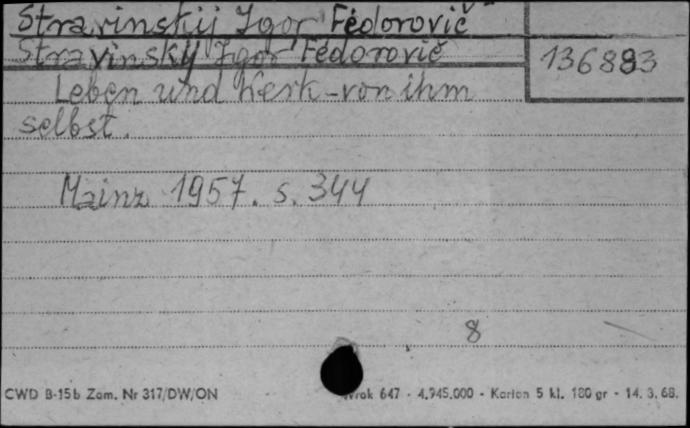 Stravinskij Igor Fëdorovič
136883
Stravinsky Igor Fëdorovič
Leben und Werk - von ihm
selbst.
Mainz 1957. s. 344
8
CWD B-15b Zam. Nr 317/DW/ON
647 - 4.945.000 - Karton 5 kl. 180 gr - 14. 3. 68.